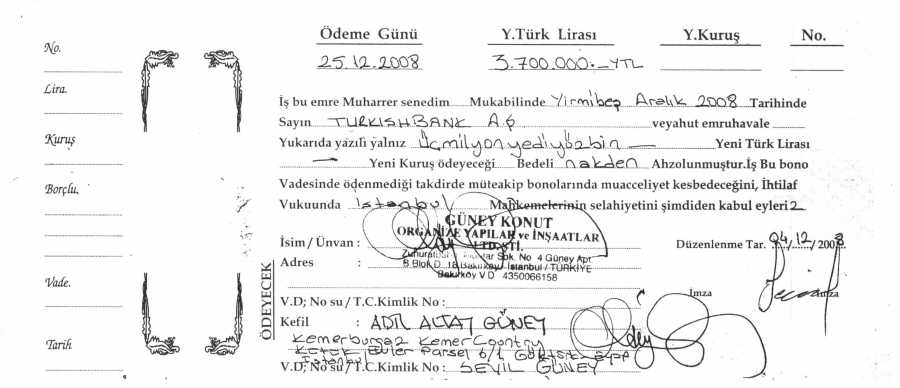 No.
Lira.
Kuruş
Borçlu.
Vade.
Tarih
Ödeme Günü Y.Türk Lirası Y.Kuruş No.
25.12.2008 3.700.000.-YTL
İş bu emre Muharrer senedim Mukabilinde Yirmibeş Aralık 2008 Tarihinde
Sayın TURKISHBANK AŞ veyahut emruhavale
Yukarıda yazılı yalnız Üçmilyonyediyüzbin — Yeni Türk Lirası
— Yeni Kuruş ödeyeceği Bedeli nakden Ahzolunmuştur.İş Bu bono
Vadesinde ödenmediği takdirde müteakip bonolarında muacceliyet kesbedeceğini, İhtilaf
Vukuunda İstanbul Mahkemelerinin selahiyetini şimdiden kabul eyleriz
GÜNEY KONUT
ORGANİZE YAPILAR ve İNŞAATLAR
LTD.ŞTİ.
İsim / Ünvan : Düzenlenme Tar. 04/12/2008
Sok. No 4 Güney Apt
Adres : B Blok D 18 Bakırköy / İstanbul / TÜRKİYE
Bakırköy V D 4350066158
ÖDEYECEK
V.D; No su / T.C.Kimlik No : İmza
Kefil : ADİL ALTAY GÜNEY
Kemerburgaz Kemer Country
Evler Parsel 6/1
İstanbul
V.D; No su / T.C.Kimlik No : SEVİL GÜNEY